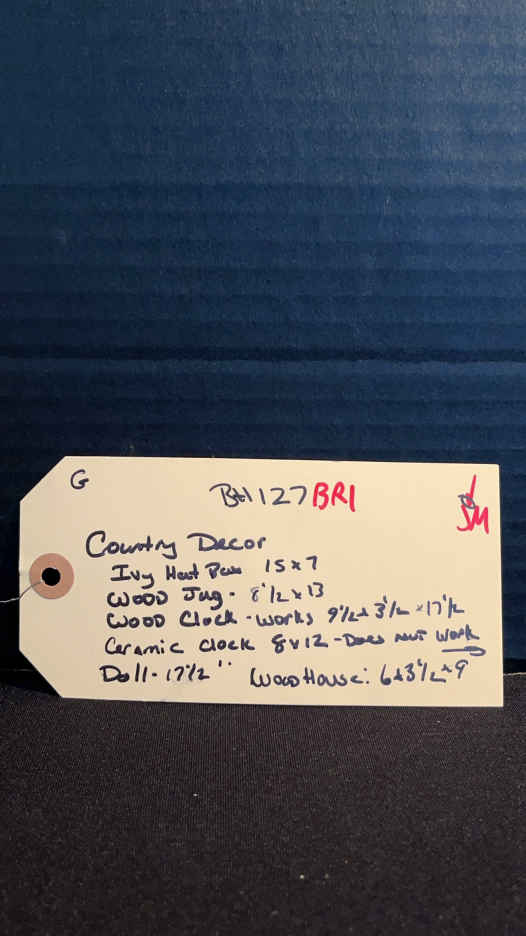 G
BH127BR1
SM
Country Decor
Ivy Heart 15 x 7
Wood Jug - 8 1/2 x 13
Wood Clock - works 9 1/2 x 3 1/2 x 17 1/2
Ceramic Clock 8 x 12 - Does not work
Doll - 17 1/2 " Wood House: 6 x 3 1/2 x 9